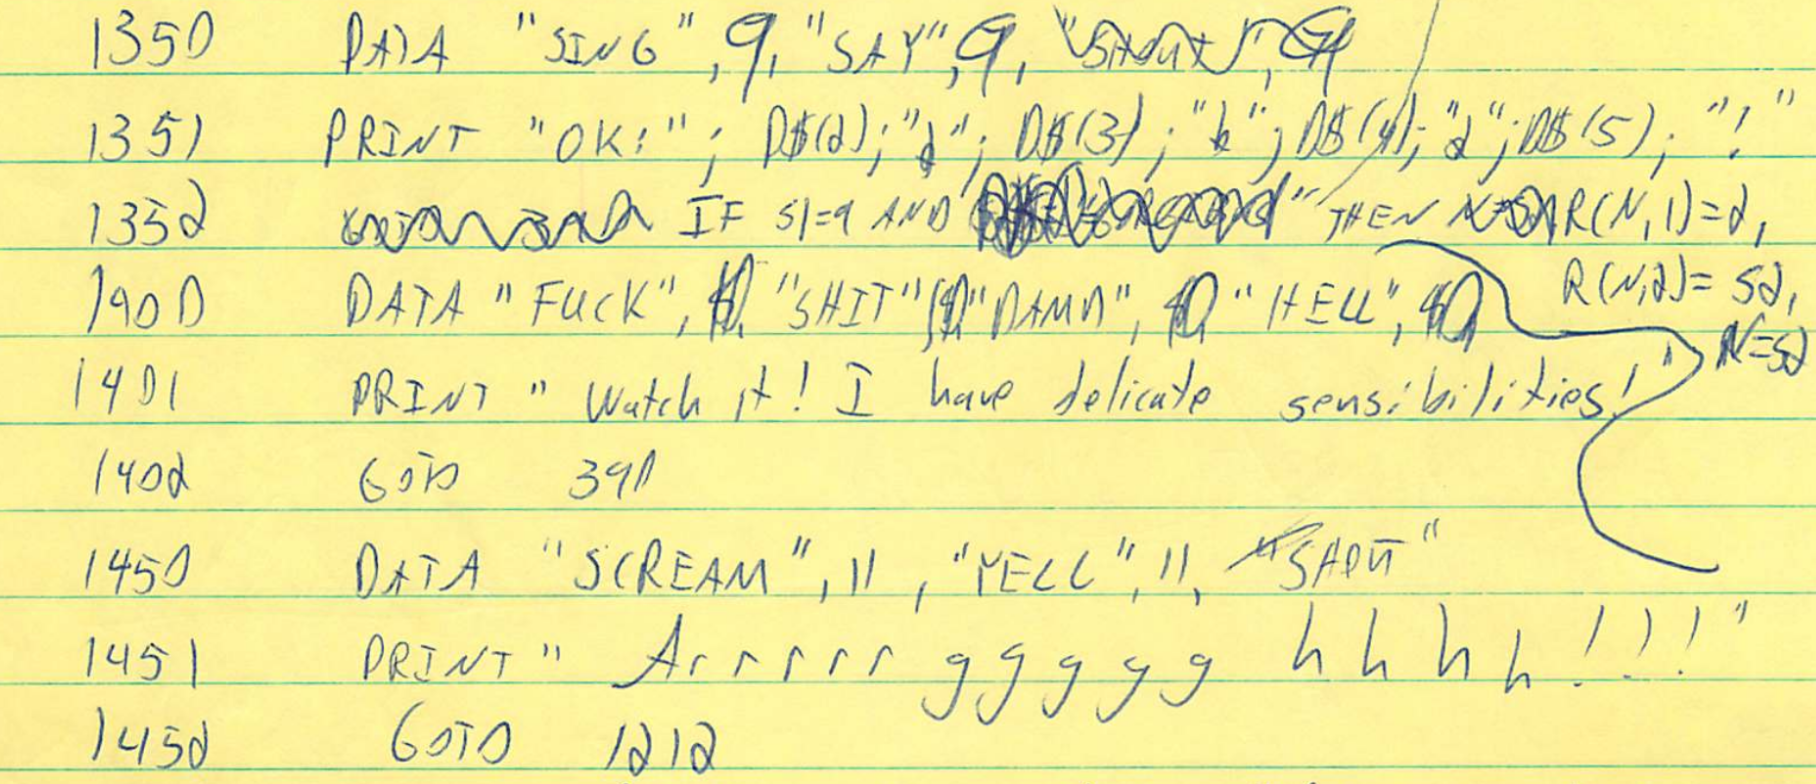 1350 DATA "SING", 9, "SAY", 9,
1351 PRINT "OK:"; D$(2); " "; D$(3); " "; D$(4); " "; D$(5); "!"
1352 IF S1=9 AND " THEN R(N,1)=2,
R(N,2)=S2,
N=S2
1400 DATA "FUCK", 10, "SHIT", 10, "DAMN", 10, "HELL", 10
1401 PRINT "Watch it! I have delicate sensibilities!"
1402 GOTO 390
1450 DATA "SCREAM", 11, "YELL", 11, "SHOUT"
1451 PRINT "Arrrrrggggghhhh!!!"
1452 GOTO 1212